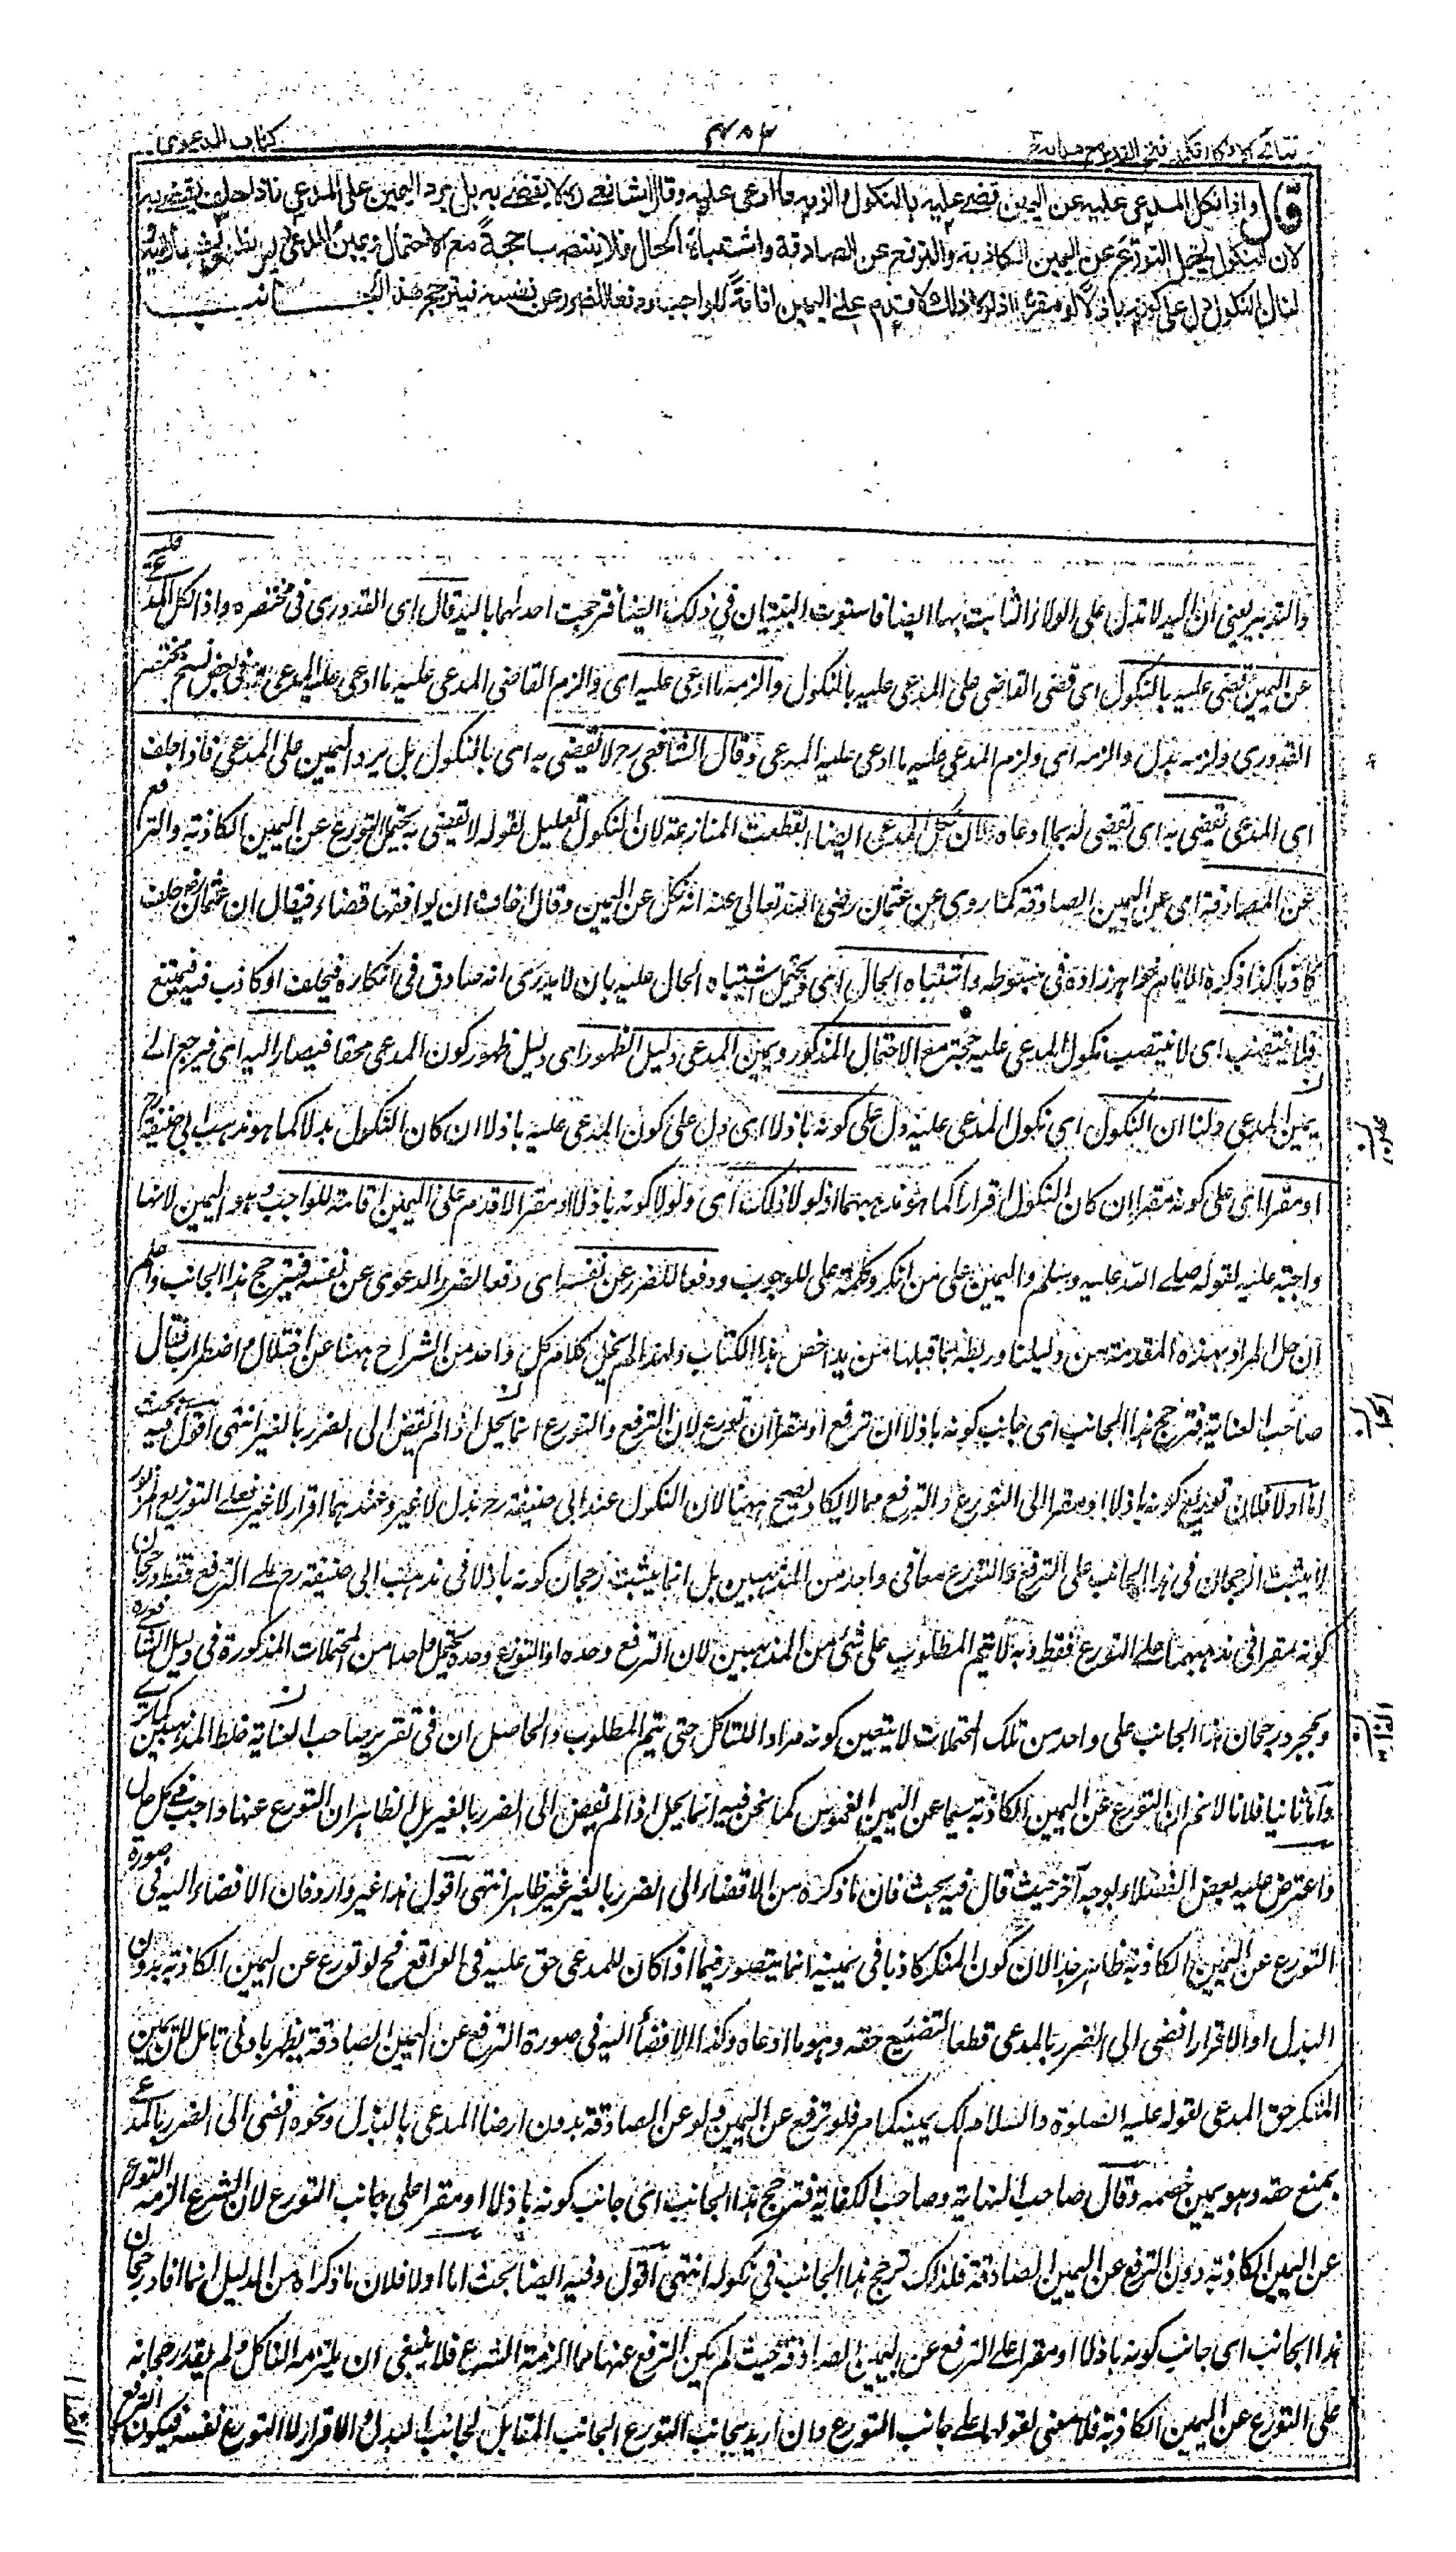 نتائج الافكار تكملة فتح القدير مع هداية
۴۸۴
كتاب الدعوى
قال واذا نكل المدعى عليه عن اليمين قضى عليه بالنكول والزمه ما ادعى عليه وقال الشافعي رح لا يقضى به بل يرد اليمين على المدعي فاذا حلف يقضى به
لان النكول يحتمل التورع عن اليمين الكاذبة والترفع عن الصادقة واشتباه الحال فلا ينتصب حجة مع الاحتمال ويمين المدعي دليل الظهور فيصار اليه
لنا ان النكول دل على كونه باذلا او مقرا اذ لولا ذلك لاقدم على اليمين اقامة للواجب ودفعا للضرر عن نفسه فيترجح هذا الجانب
والتدبير يعني ان اليد لا تدل على الولاء الثابت بهما ايضا فاستوت البينتان في ذلك ايضا فترجحت احدٰهما باليد قال اى القدورى فى مختصره واذا نكل المدعى عليه
عن اليمين قضى عليه بالنكول اى قضى القاضى على المدعى عليه بالنكول والزمه ما ادعى عليه اى والزم القاضى المدعى عليه ما ادعى عليه المدعى وفى بعض نسخ مختصر
القدورى ولزمه بدل والزمه اى ولزم المدعى عليه ما ادعى عليه المدعى وقال الشافعى رح لا يقضى به اى بالنكول بل يرد اليمين على المدعى فاذا حلف
اى المدعى يقضى به اى يقضى له بما ادعاه وان نكل المدعى ايضا انقطعت المنازعة لان النكول تعليل لقوله لا يقضى به يحتمل التورع عن اليمين الكاذبة والترفع
عن الصادقة اى عن اليمين الصادقة كما روى عن عثمان رضى الله تعالى عنه انه نكل عن اليمين وقال اخاف ان يوافقها قضاء فيقال ان عثمان رض حلف
كاذبا كذا ذكره الامام خواهر زاده فى مبسوطه واشتباه الحال اى ويحتمل اشتباه الحال عليه بان لا يدرى انه صادق فى انكاره فيحلف او كاذب فيه فيمتنع
فلا ينتصب اى لا ينتصب نكول المدعى عليه حجة مع الاحتمال المذكور ويمين المدعى دليل الظهور اى دليل ظهور كون المدعى محقا فيصار اليه اى فيرجع الى
يمين المدعى ولنا ان النكول اى نكول المدعى عليه دل على كونه باذلا اى دل على كون المدعى عليه باذلا ان كان النكول بدلا كما هو مذهب ابى حنيفة رح
او مقرا اى على كونه مقرا ان كان النكول اقرارا كما هو مذهبهما اذ لولا ذلك اى ولولا كونه باذلا او مقرا لاقدم على اليمين اقامة للواجب وهو اليمين لانها
واجبة عليه لقوله صلى الله عليه وسلم واليمين على من انكر وكلمة على للوجوب ودفعا للضرر عن نفسه اى دفعا لضرر الدعوى عن نفسه فيترجح هذا الجانب واعلم
ان حل المراد بهذه المقدمة من دليلنا وربطها بما قبلها من مداحض هذا الكتاب ولهذا لم يخل كلام كل واحد من الشراح ههنا عن اختلال واضطراب فقال
صاحب العناية فترجح هذا الجانب اى جانب كونه باذلا ان ترفع او مقرا ان تورع لان الترفع والتورع انما يحل اذا لم يفض الى الضرر بالغير انتهى اقول فيه بحث
اما اولا فلان توزيع كونه باذلا او مقرا الى التورع والترفع مما لا يكاد يصح ههنا لان النكول عند ابى حنيفة رح بذل لا غير وعندهما اقرار لا غير فعلى التوزيع المزبور
لا يثبت الرجحان فى هذا الجانب على الترفع والتورع معا فى واحد من المذهبين بل انما يثبت رجحان كونه باذلا فى مذهب ابى حنيفة رح على الترفع فقط ورجحان
كونه مقرا فى مذهبهما على التورع فقط وبه لا يتم المطلوب على شئ من المذهبين لان الترفع وحده او التورع وحده يحتمل واحدا من المحتملات المذكورة فى دليل الشافعى
وبمجرد رجحان هذا الجانب على واحد من تلك المحتملات لا يتعين كونه مرادا للناكل حتى يتم المطلوب والحاصل ان فى تقرير صاحب العناية خلط المذهبين كما ترى
واما ثانيا فلانا لا نم ان التورع عن اليمين الكاذبة سيما عن اليمين الغموس كما نحن فيه انما يحل اذا لم يفض الى الضرر بالغير بل الظاهر ان التورع عنها واجب فى كل حال
واعترض عليه بعض الفضلاء بوجه آخر حيث قال فيه بحث فان ما ذكره من الافضاء الى الضرر بالغير غير ظاهر انتهى اقول هذا غير وارد فان الافضاء اليه فى صورة
التورع عن اليمين الكاذبة ظاهر جدا لان كون المنكر كاذبا فى يمينه انما يتصور فيما اذا كان للمدعى حق عليه فى الواقع فح لو تورع عن اليمين الكاذبة بدون
البذل او الاقرار افضى الى الضرر بالمدعى قطعا لتضييع حقه وهو ما ادعاه وكذا الافضاء اليه فى صورة الترفع عن اليمين الصادقة يظهر بادنى تامل لان يمين
المنكر حق المدعى لقوله عليه الصلوة والسلام لك يمينه كما مر فلو ترفع عن اليمين ولو عن الصادقة بدون ارضاء المدعى بالبذل ونحوه افضى الى الضرر بالمدعى
بمنع حقه وهو يمين خصمه وقال صاحب النهاية وصاحب الكفاية فترجح هذا الجانب اى جانب كونه باذلا او مقرا على جانب التورع لان الشرع الزمه التورع
عن اليمين الكاذبة دون الترفع عن اليمين الصادقة فلذلك ترجح هذا الجانب فى نكوله انتهى اقول وفيه ايضا بحث اما اولا فلان ما ذكراه من الدليل انما افاد رجحان
هذا الجانب اى جانب كونه باذلا او مقرا على الترفع عن اليمين الصادقة حيث لم يكن الترفع عنها مما الزمه الشرع فلا ينبغى ان يلتزمه الناكل ولم يفد رجحانه
على التورع عن اليمين الكاذبة فلا معنى لقولهما على جانب التورع وان اريد بجانب التورع الجانب المقابل لجانب البذل والاقرار لا التورع نفسه فيكون الترفع